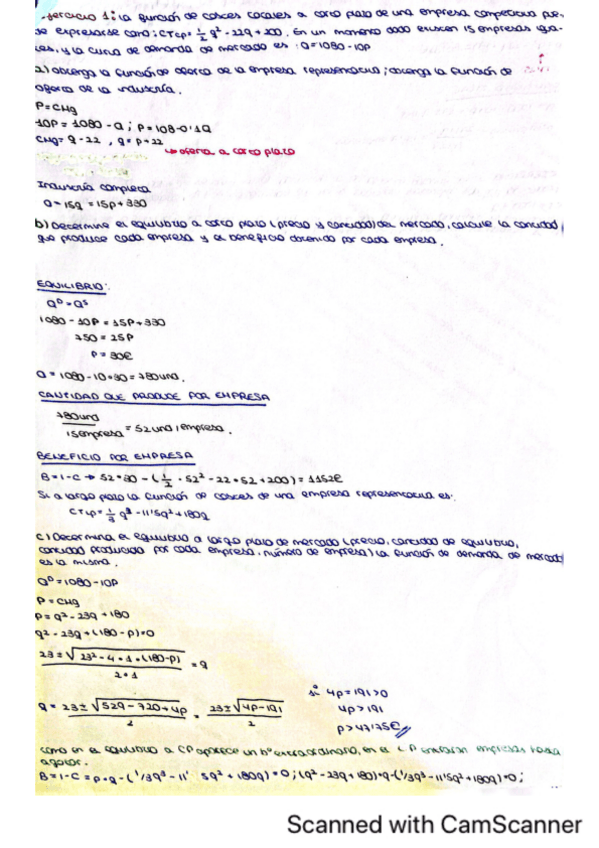 Ejercicio 1: la función de costes totales a corto plazo de una empresa competitiva pue-
de expresarse como: CTcp = 1/2 q² - 22q + 200. En un momento dado existen 15 empresas igua-
les, y la curva de demanda de mercado es: Q = 1080 - 10P
a) obtenga la función de oferta de la empresa representativa; obtenga la función de
oferta de la industria.
P = CMg
10P = 1080 - Q ; P = 108 - 0'1Q
CMg = q - 22 , q = P + 22
↳ oferta a corto plazo
Industria completa
Q = 15q = 15P + 330
b) Determine el equilibrio a corto plazo (precio y cantidad) del mercado, calcule la cantidad
que produce cada empresa y el beneficio obtenido por cada empresa.
EQUILIBRIO:
Qᴰ = Qˢ
1080 - 10P = 15P + 330
750 = 25P
P = 30€
Q = 1080 - 10·30 = 780und.
CANTIDAD QUE PRODUCE POR EMPRESA
780und / 15empresa = 52 und / empresa.
BENEFICIO POR EMPRESA
B = I - C → 52·30 - (1/2 · 52² - 22·52 + 200) = 1152€
Si a largo plazo la función de costes de una empresa representativa es:
CTLp = 1/3 q³ - 11'5q² + 180q
c) Determina el equilibrio a largo plazo de mercado (precio, cantidad de equilibrio,
cantidad producida por cada empresa, número de empresa) la función de demanda de mercado
es la misma.
Qᴰ = 1080 - 10P
P = CMg
P = q² - 23q + 180
q² - 23q + (180 - P) = 0
23 ± √(23² - 4·1·(180-P)) / 2·1 = q
q = 23 ± √(529 - 720 + 4P) / 2 = 23 ± √(4P - 191) / 2
si 4P - 191 > 0
4P > 191
P > 47'75€
como en el equilibrio a CP aparece un bº extraordinario, en el LP entrarán empresas hasta
agotar.
B = I - C = P·q - (1/3q³ - 11'5q² + 180q) = 0 ; (q² - 23q + 180)·q - (1/3q³ - 11'5q² + 180q) = 0 ;
Scanned with CamScanner